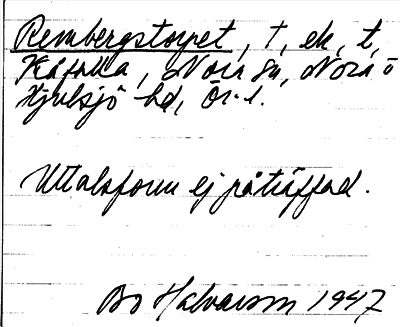 Rembergstorpet, t, ek, t,
Kåfalla, Nora sn, Nora o
Hjulsjö hd, Ör. l.
Uttalsform ej påträffad.
Bo Halvarson 1947